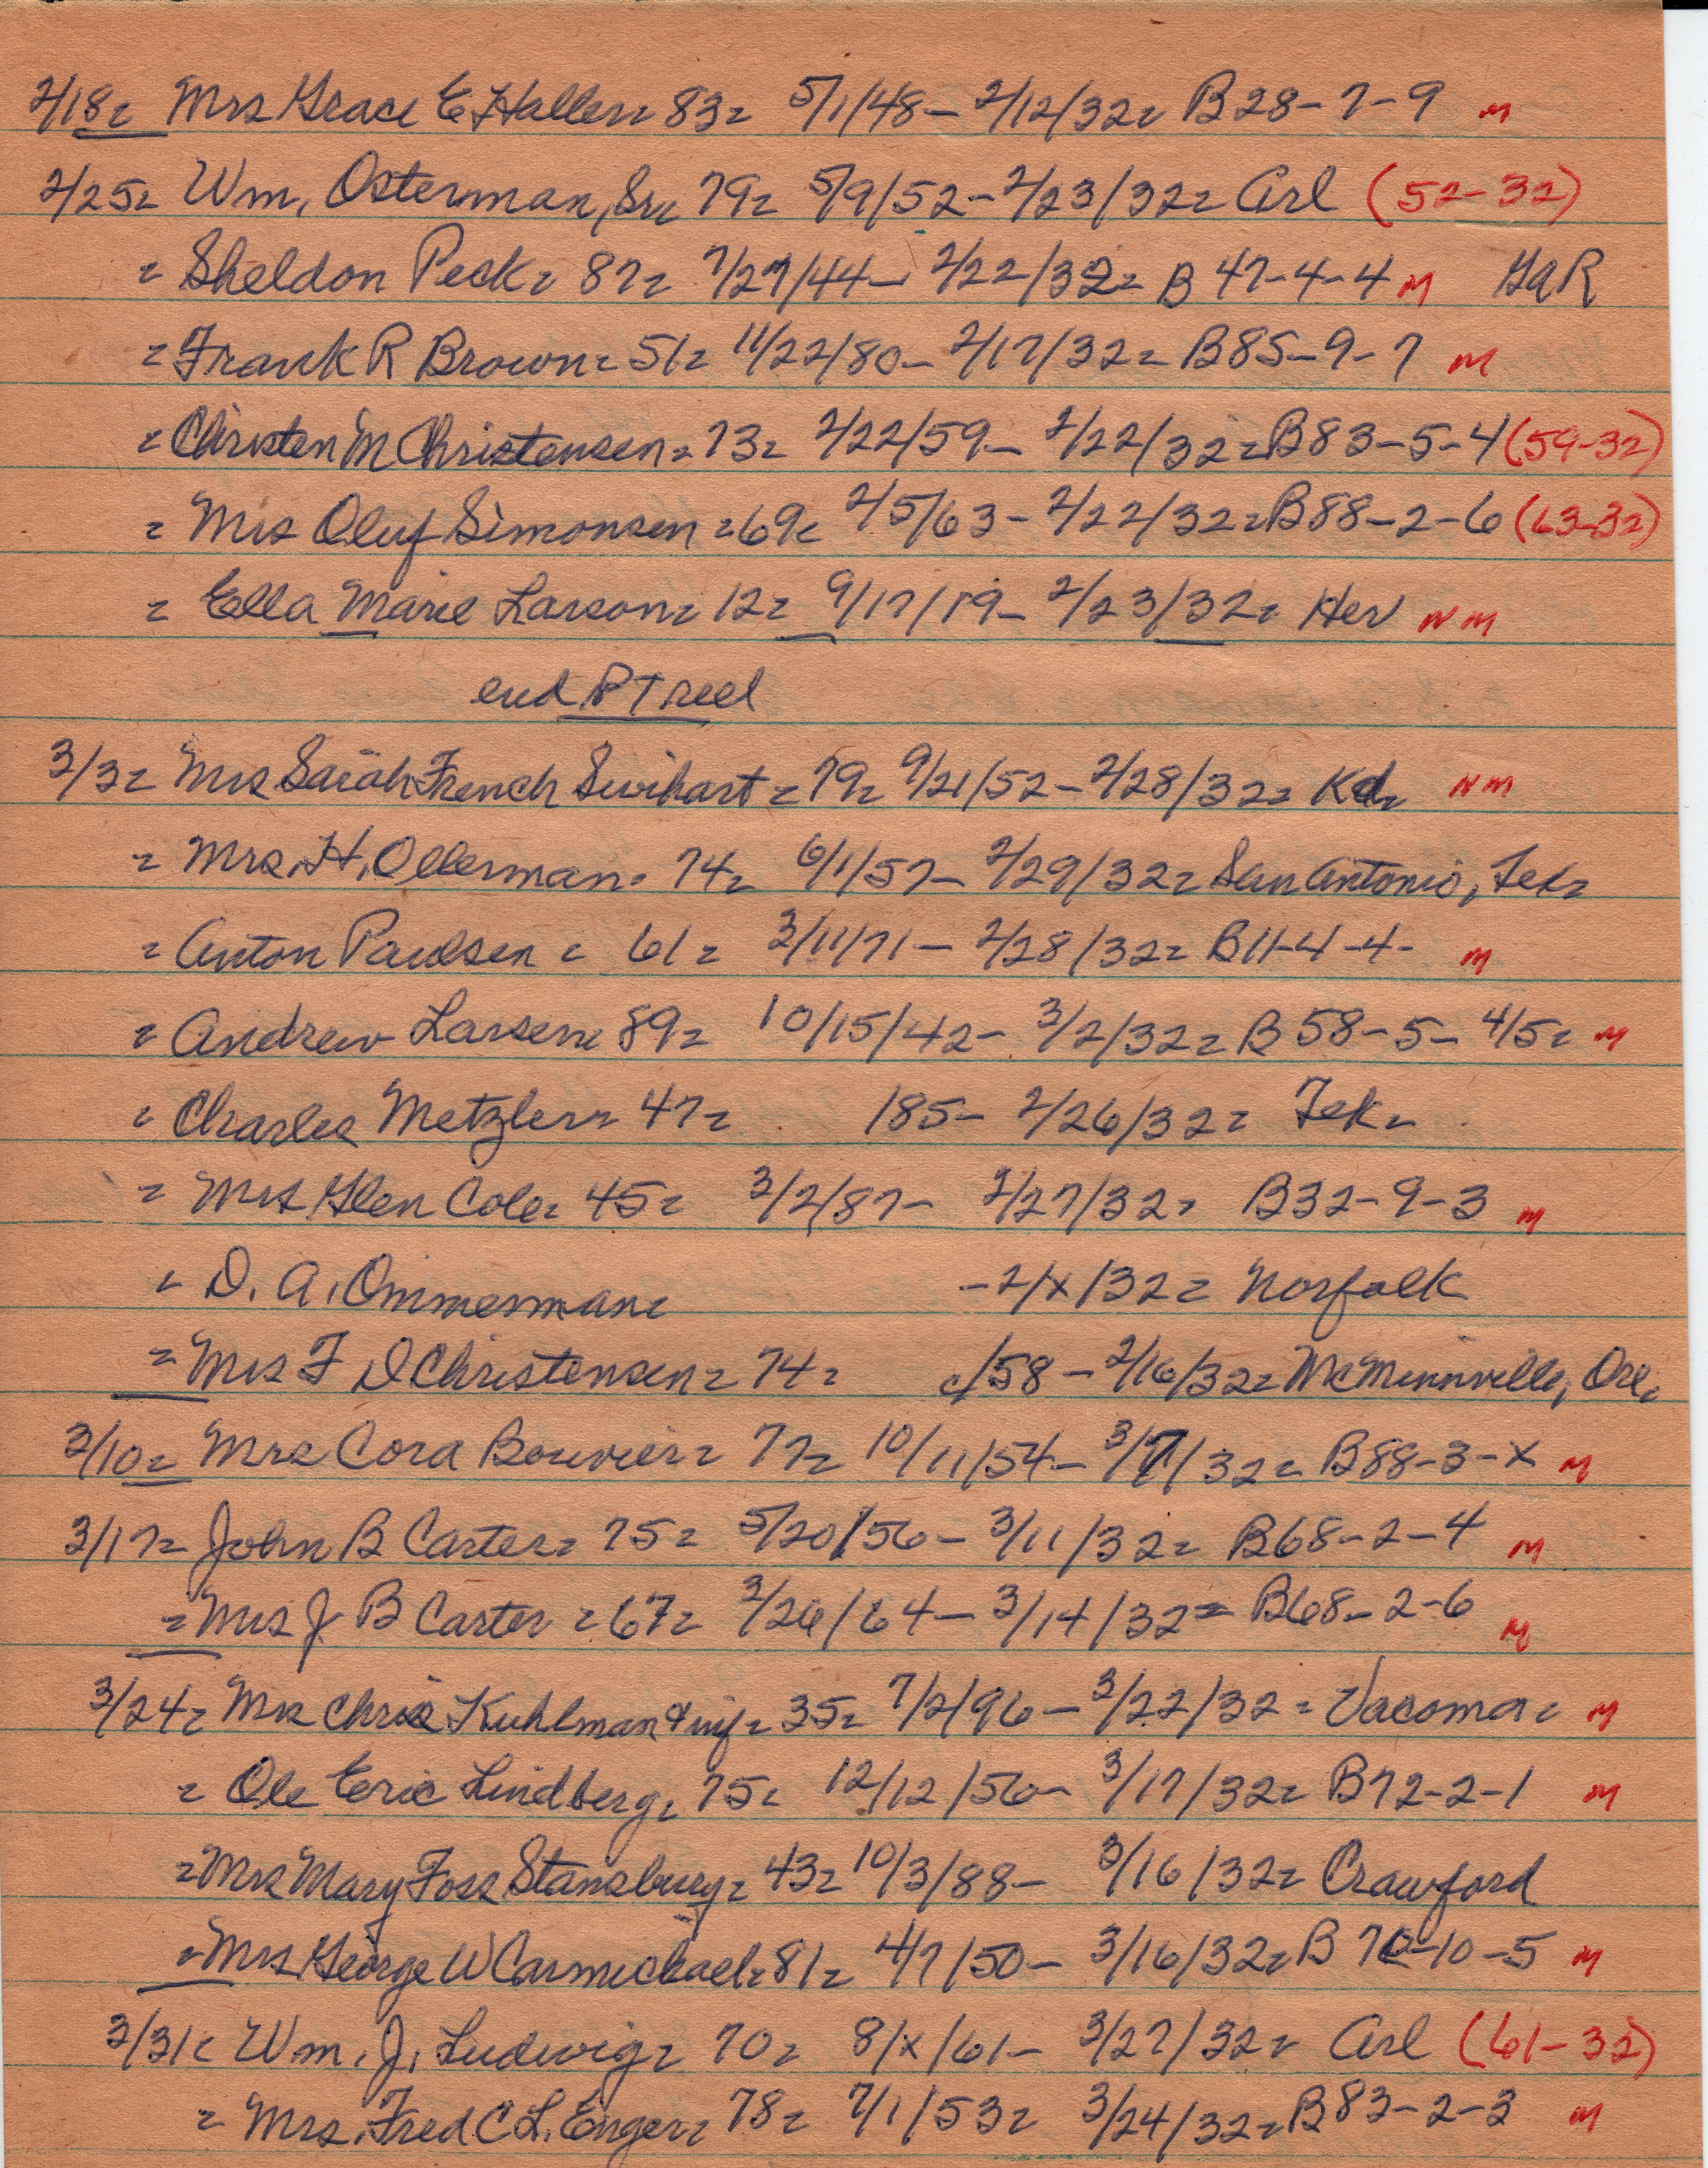 2/18= Mrs Grace E Haller= 83= 5/1/48- 2/12/32= B28-7-9 M
2/25= Wm. Osterman, Sr= 79= 5/9/52- 2/23/32= Arl (52-32)
= Sheldon Peck= 87= 7/27/44- 2/22/32= B 47-4-4 M GAR
= Frank R Brown= 51= 11/22/80- 2/17/32= B85-9-7 M
= Christen M Christensen= 73= 2/22/59- 2/22/32= B83-5-4 (59-32)
= Mrs Oluf Simonsen =69= 2/5/63- 2/22/32= B88-2-6 (63-32)
= Ella Marie Larson= 12= 9/17/19- 2/23/32= Her NM
end PT reel
3/3= Mrs Sarah French Swihart= 79= 9/21/52- 2/28/32= Kd= NM
= Mrs. H. Ollerman= 74= 6/1/57- 2/29/32= San Antonio, Tex=
= Anton Paulsen = 61= 3/11/71- 2/28/32= B11-4-4- M
= Andrew Larsen= 89= 10/15/42- 3/2/32= B 58-5-4/5= M
= Charles Metzler= 47= 185- 2/26/32= Tek=
= Mrs Glen Cole= 45= 3/2/87- 2/27/32= B32-9-3 M
= D. A. Ommerman= -2/x/32= Norfolk
= Mrs F D Christensen= 74= c/58- 2/16/32= McMinnville, Ore=
3/10= Mrs Cora Bouvier= 77= 10/11/54- 3/7/32= B88-3-x M
3/17= John B Carter= 75= 5/20/56- 3/11/32= B68-2-4 M
= Mrs J B Carter =67= 3/26/64- 3/14/32= B68-2-6 M
3/24= Mrs Chris Kuhlman & inf= 35= 7/2/96- 3/22/32= Vacoma= M
= Ole Eric Lindberg= 75= 12/12/56- 3/17/32= B72-2-1 M
= Mrs Mary Foss Stansbury= 43= 10/3/88- 3/16/32= Crawford
= Mrs George W Carmichael= 81= 4/7/50- 3/16/32= B 70-10-5 M
3/31= Wm. J. Ludwig= 70= 8/x/61- 3/27/32= Arl (61-32)
= Mrs. Fred C L. Enger= 78= 7/1/53= 3/24/32= B83-2-3 M